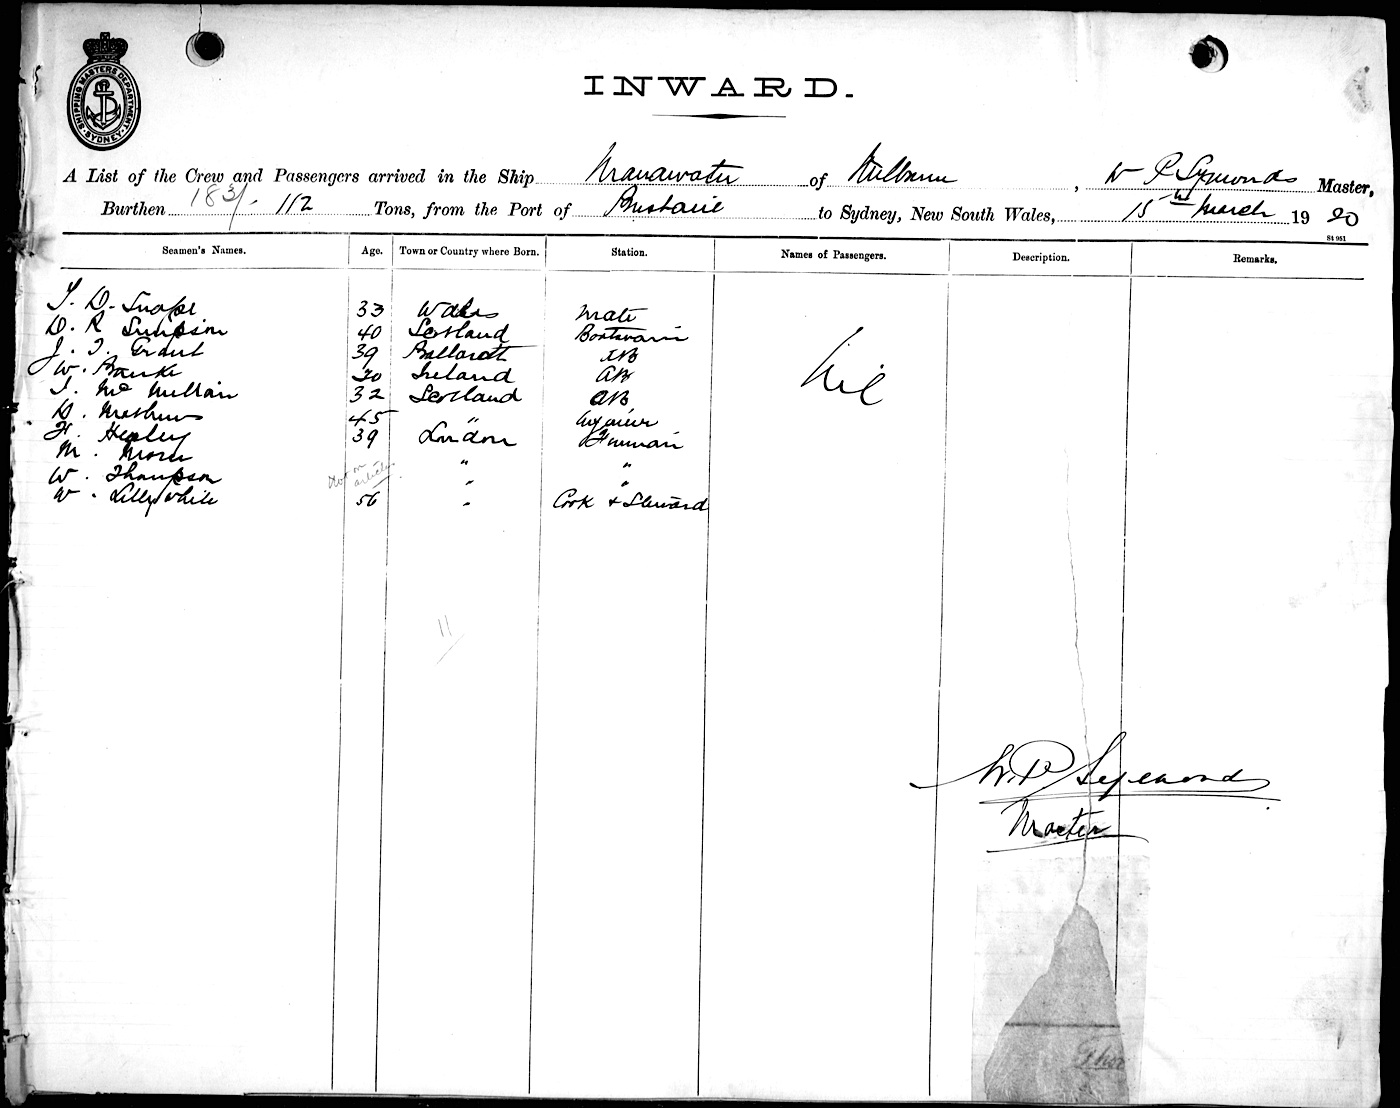 SHIPPING MASTERS DEPARTMENT. SYDNEY
INWARD.
A List of the Crew and Passengers arrived in the Ship Manawatu of Melbourne, W P Symonds Master,
Burthen 183/. 112 Tons, from the Port of Brisbane to Sydney, New South Wales, 15 March 1920
St 951
Seamen's Names. Age. Town or Country where Born. Station. Names of Passengers. Description. Remarks.
D. Snape 33 Wales Mate
D. R Simpson 40 Scotland Boatswain
J. T. Grant 39 Ballarat AB
W. 30 Ireland AB
Mc Millan 32 Scotland AB
Nil
D. Mathews 45 " Engineer
F. Hegley 39 London Fireman
M. " "
W. Thompson Not on articles " "
W. Lillywhite 56 " Cook & Steward
11
W. P Symonds
Master
Thom